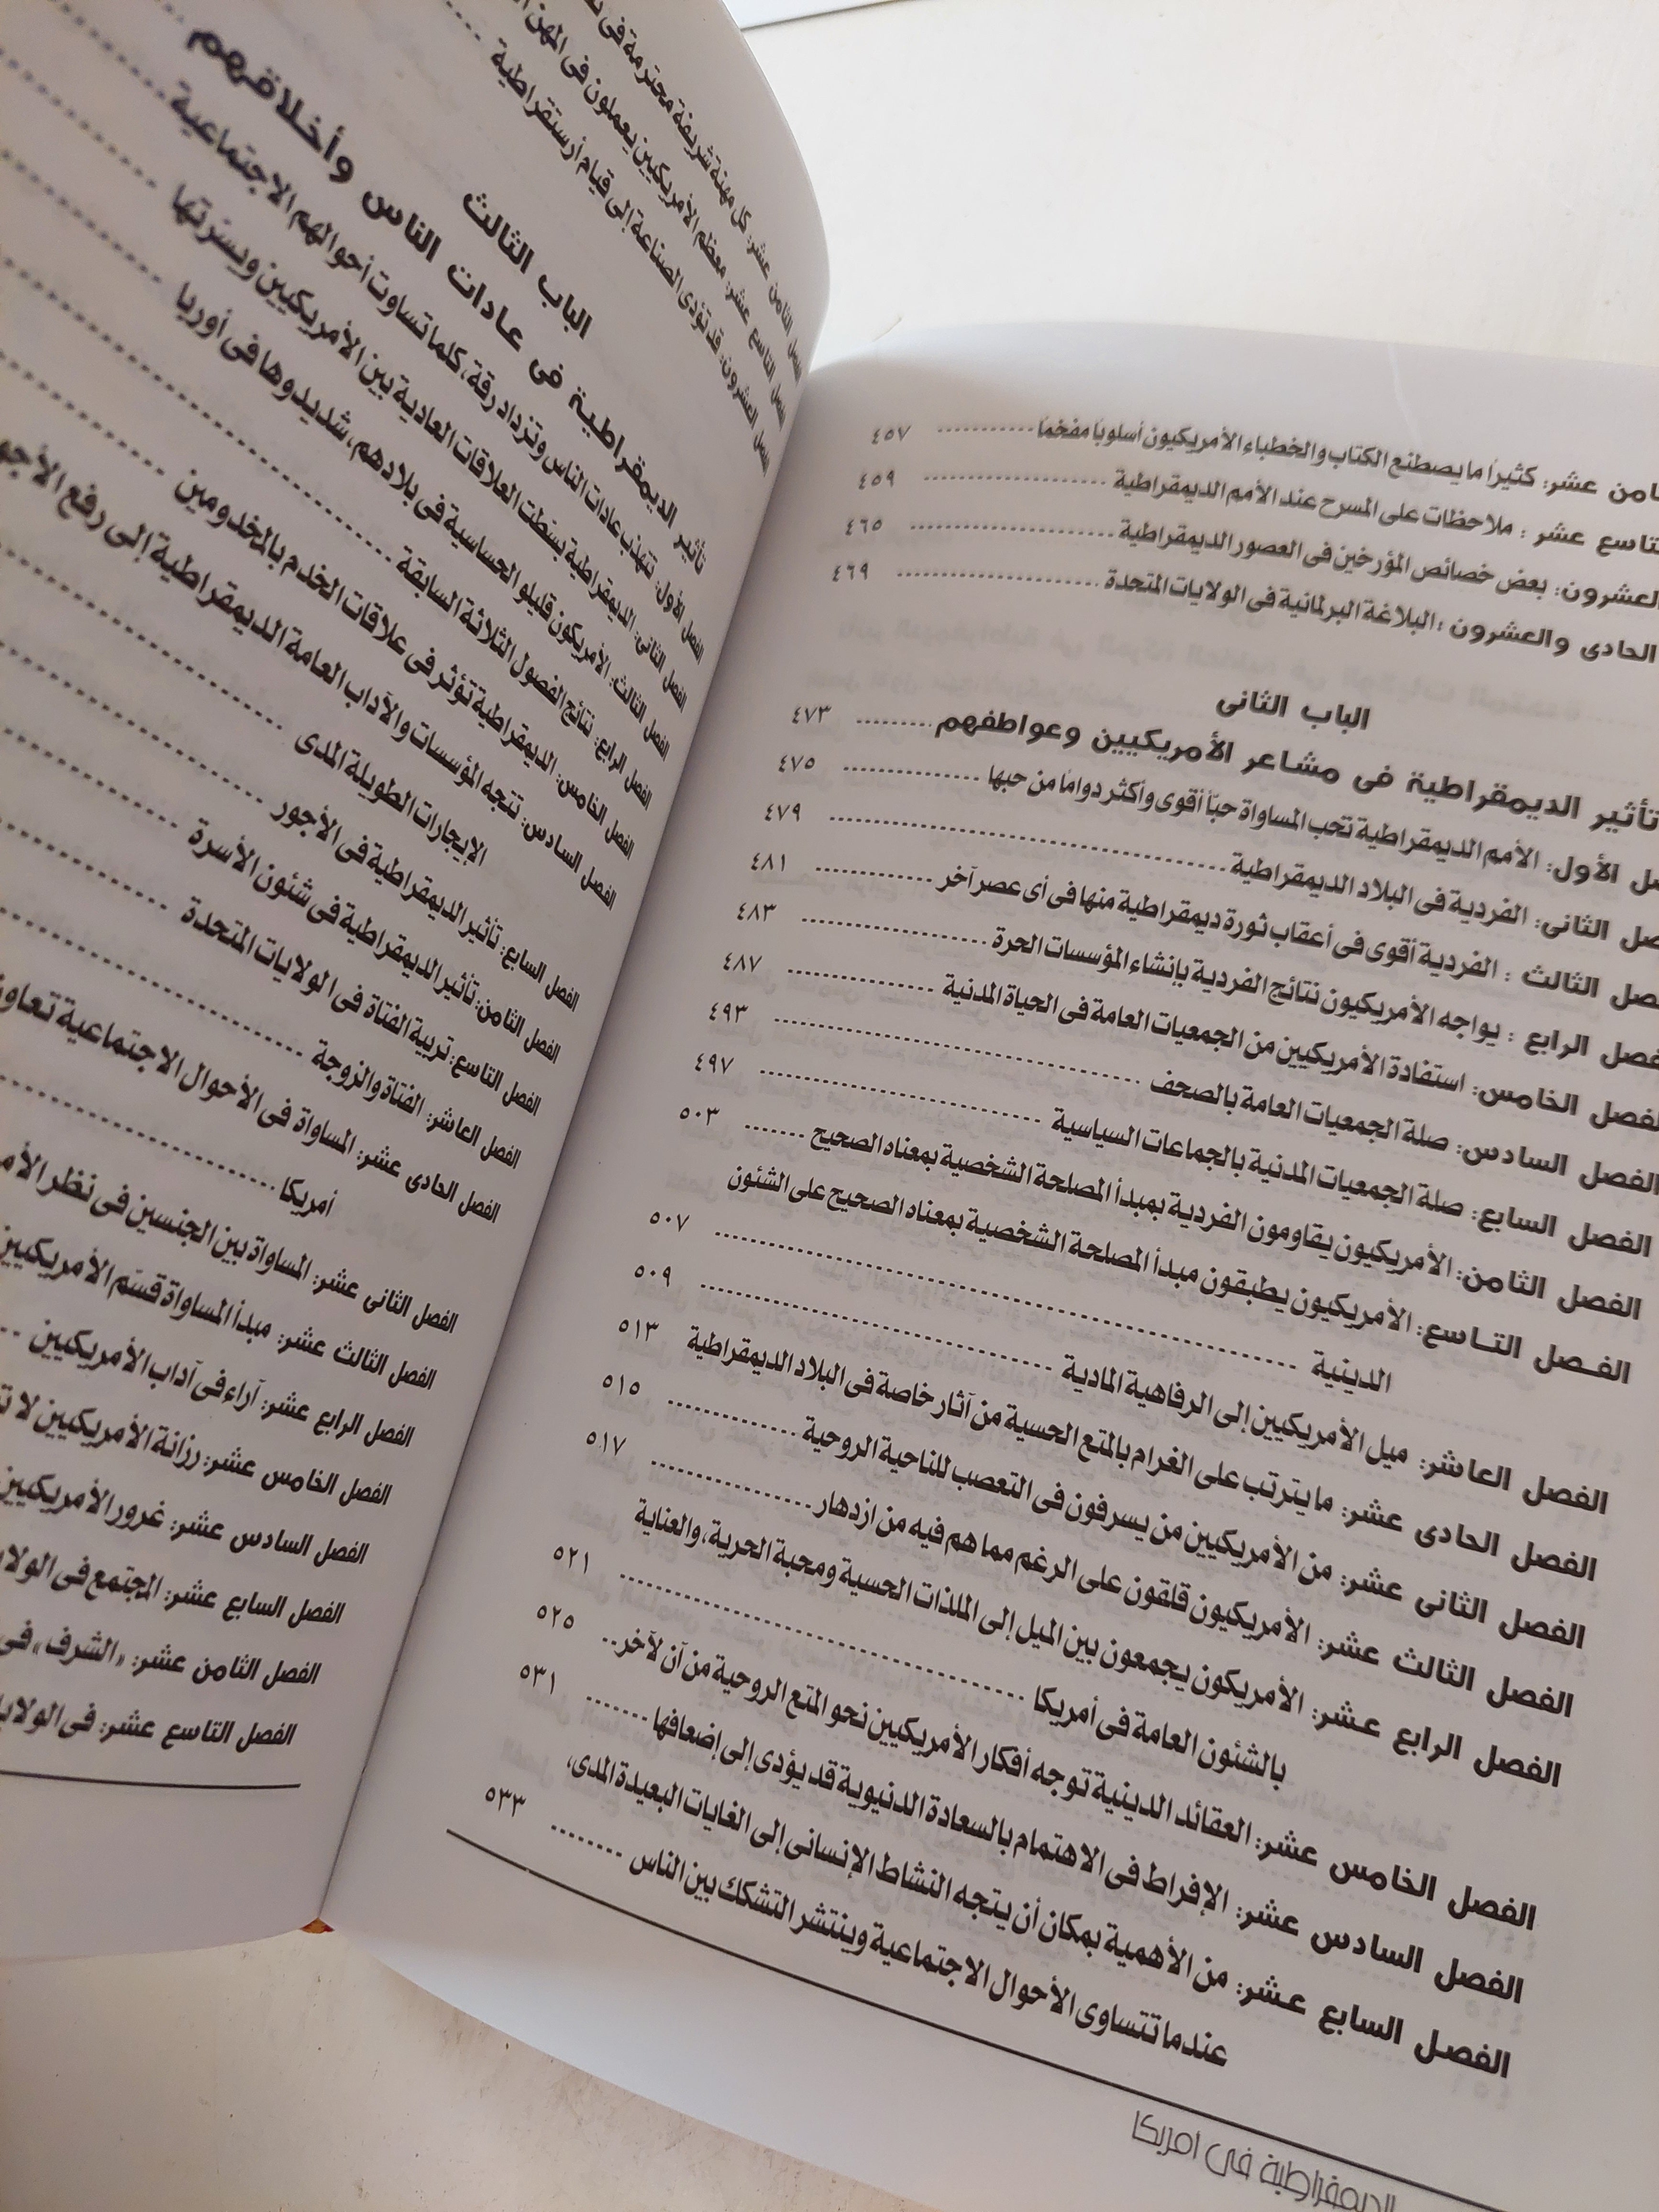 ثامن عشر: كثيرًا ما يصطنع الكتاب والخطباء الأمريكيون أسلوبًا مفخمًا ............ ٤٥٧
تاسع عشر : ملاحظات على المسرح عند الأمم الديمقراطية ............ ٤٥٩
العشرون: بعض خصائص المؤرخين فى العصور الديمقراطية ............ ٤٦٥
الحادى والعشرون : البلاغة البرلمانية فى الولايات المتحدة ............ ٤٦٩
الباب الثانى
تأثير الديمقراطية فى مشاعر الأمريكيين وعواطفهم ......... ٤٧٣
الأول: الأمم الديمقراطية تحب المساواة حبًا أقوى وأكثر دوامًا من حبها ............ ٤٧٥
الثانى: الفردية فى البلاد الديمقراطية ............ ٤٧٩
الثالث : الفردية أقوى فى أعقاب ثورة ديمقراطية منها فى أى عصر آخر ............ ٤٨١
فصل الرابع : يواجه الأمريكيون نتائج الفردية بإنشاء المؤسسات الحرة ............ ٤٨٣
لفصل الخامس: استفادة الأمريكيين من الجمعيات العامة فى الحياة المدنية ............ ٤٨٧
الفصل السادس: صلة الجمعيات العامة بالصحف ............ ٤٩٣
الفصل السابع: صلة الجمعيات المدنية بالجماعات السياسية ............ ٤٩٧
الفصل الثامن: الأمريكيون يقاومون الفردية بمبدأ المصلحة الشخصية بمعناه الصحيح ....... ٥٠٣
الفصل التاسع: الأمريكيون يطبقون مبدأ المصلحة الشخصية بمعناه الصحيح على الشئون
الدينية ............ ٥٠٧
الفصل العاشر: ميل الأمريكيين إلى الرفاهية المادية ............ ٥٠٩
الفصل الحادى عشر: ما يترتب على الغرام بالمتع الحسية من آثار خاصة فى البلاد الديمقراطية ٥١٣
الفصل الثانى عشر: من الأمريكيين من يسرفون فى التعصب للناحية الروحية ............ ٥١٥
الفصل الثالث عشر: الأمريكيون قلقون على الرغم مما هم فيه من ازدهار ............ ٥١٧
الفصل الرابع عشر: الأمريكون يجمعون بين الميل إلى الملذات الحسية ومحبة الحرية، والعناية
بالشئون العامة فى أمريكا ............ ٥٢١
الفصل الخامس عشر: العقائد الدينية توجه أفكار الأمريكيين نحو المتع الروحية من آن لآخر .. ٥٢٥
الفصل السادس عشر: الإفراط فى الاهتمام بالسعادة الدنيوية قد يؤدى إلى إضعافها ....... ٥٣١
الفصل السابع عشر: من الأهمية بمكان أن يتجه النشاط الإنسانى إلى الغايات البعيدة المدى،
عندما تتساوى الأحوال الاجتماعية وينتشر التشكك بين الناس ........ ٥٣٣
الديمقراطية فى امريكا
الفصل الثامن عشر: كل مهنة شريفة محترمة فى
الفصل التاسع عشر: معظم الأمريكيين يعملون فى المهن
الفصل العشرون: قد تؤدى الصناعة إلى قيام أرستقراطية
الباب الثالث
تأثير الديمقراطية فى عادات الناس وأخلاقهم
الفصل الأول: تتهذب عادات الناس وتزداد رقة، كلما تساوت أحوالهم الاجتماعية
الفصل الثانى: الديمقراطية بسّطت العلاقات العادية بين الأمريكيين ويسّرتها
الفصل الثالث: الأمريكون قليلو الحساسية فى بلادهم، شديدوها فى أوربا
الفصل الرابع: نتائج الفصول الثلاثة السابقة
الفصل الخامس: الديمقراطية تؤثر فى علاقات الخدم بالمخدومين
الفصل السادس: تتجه المؤسسات والآداب العامة الديمقراطية إلى رفع
الإيجارات الطويلة المدى
الفصل السابع: تأثير الديمقراطية فى الأجور
الفصل الثامن: تأثير الديمقراطية فى شئون الأسرة
الفصل التاسع: تربية الفتاة فى الولايات المتحدة
الفصل العاشر: الفتاة والزوجة
الفصل الحادى عشر: المساواة فى الأحوال الاجتماعية
أمريكا
الفصل الثانى عشر: المساواة بين الجنسين فى نظر
الفصل الثالث عشر: مبدأ المساواة قسّم الأمريكيين
الفصل الرابع عشر: آراء فى آداب الأمريكيين
الفصل الخامس عشر: رزانة الأمريكيين لا
الفصل السادس عشر: غرور الأمريكيين
الفصل السابع عشر: المجتمع فى
الفصل الثامن عشر: «الشرف» فى
الفصل التاسع عشر: فى